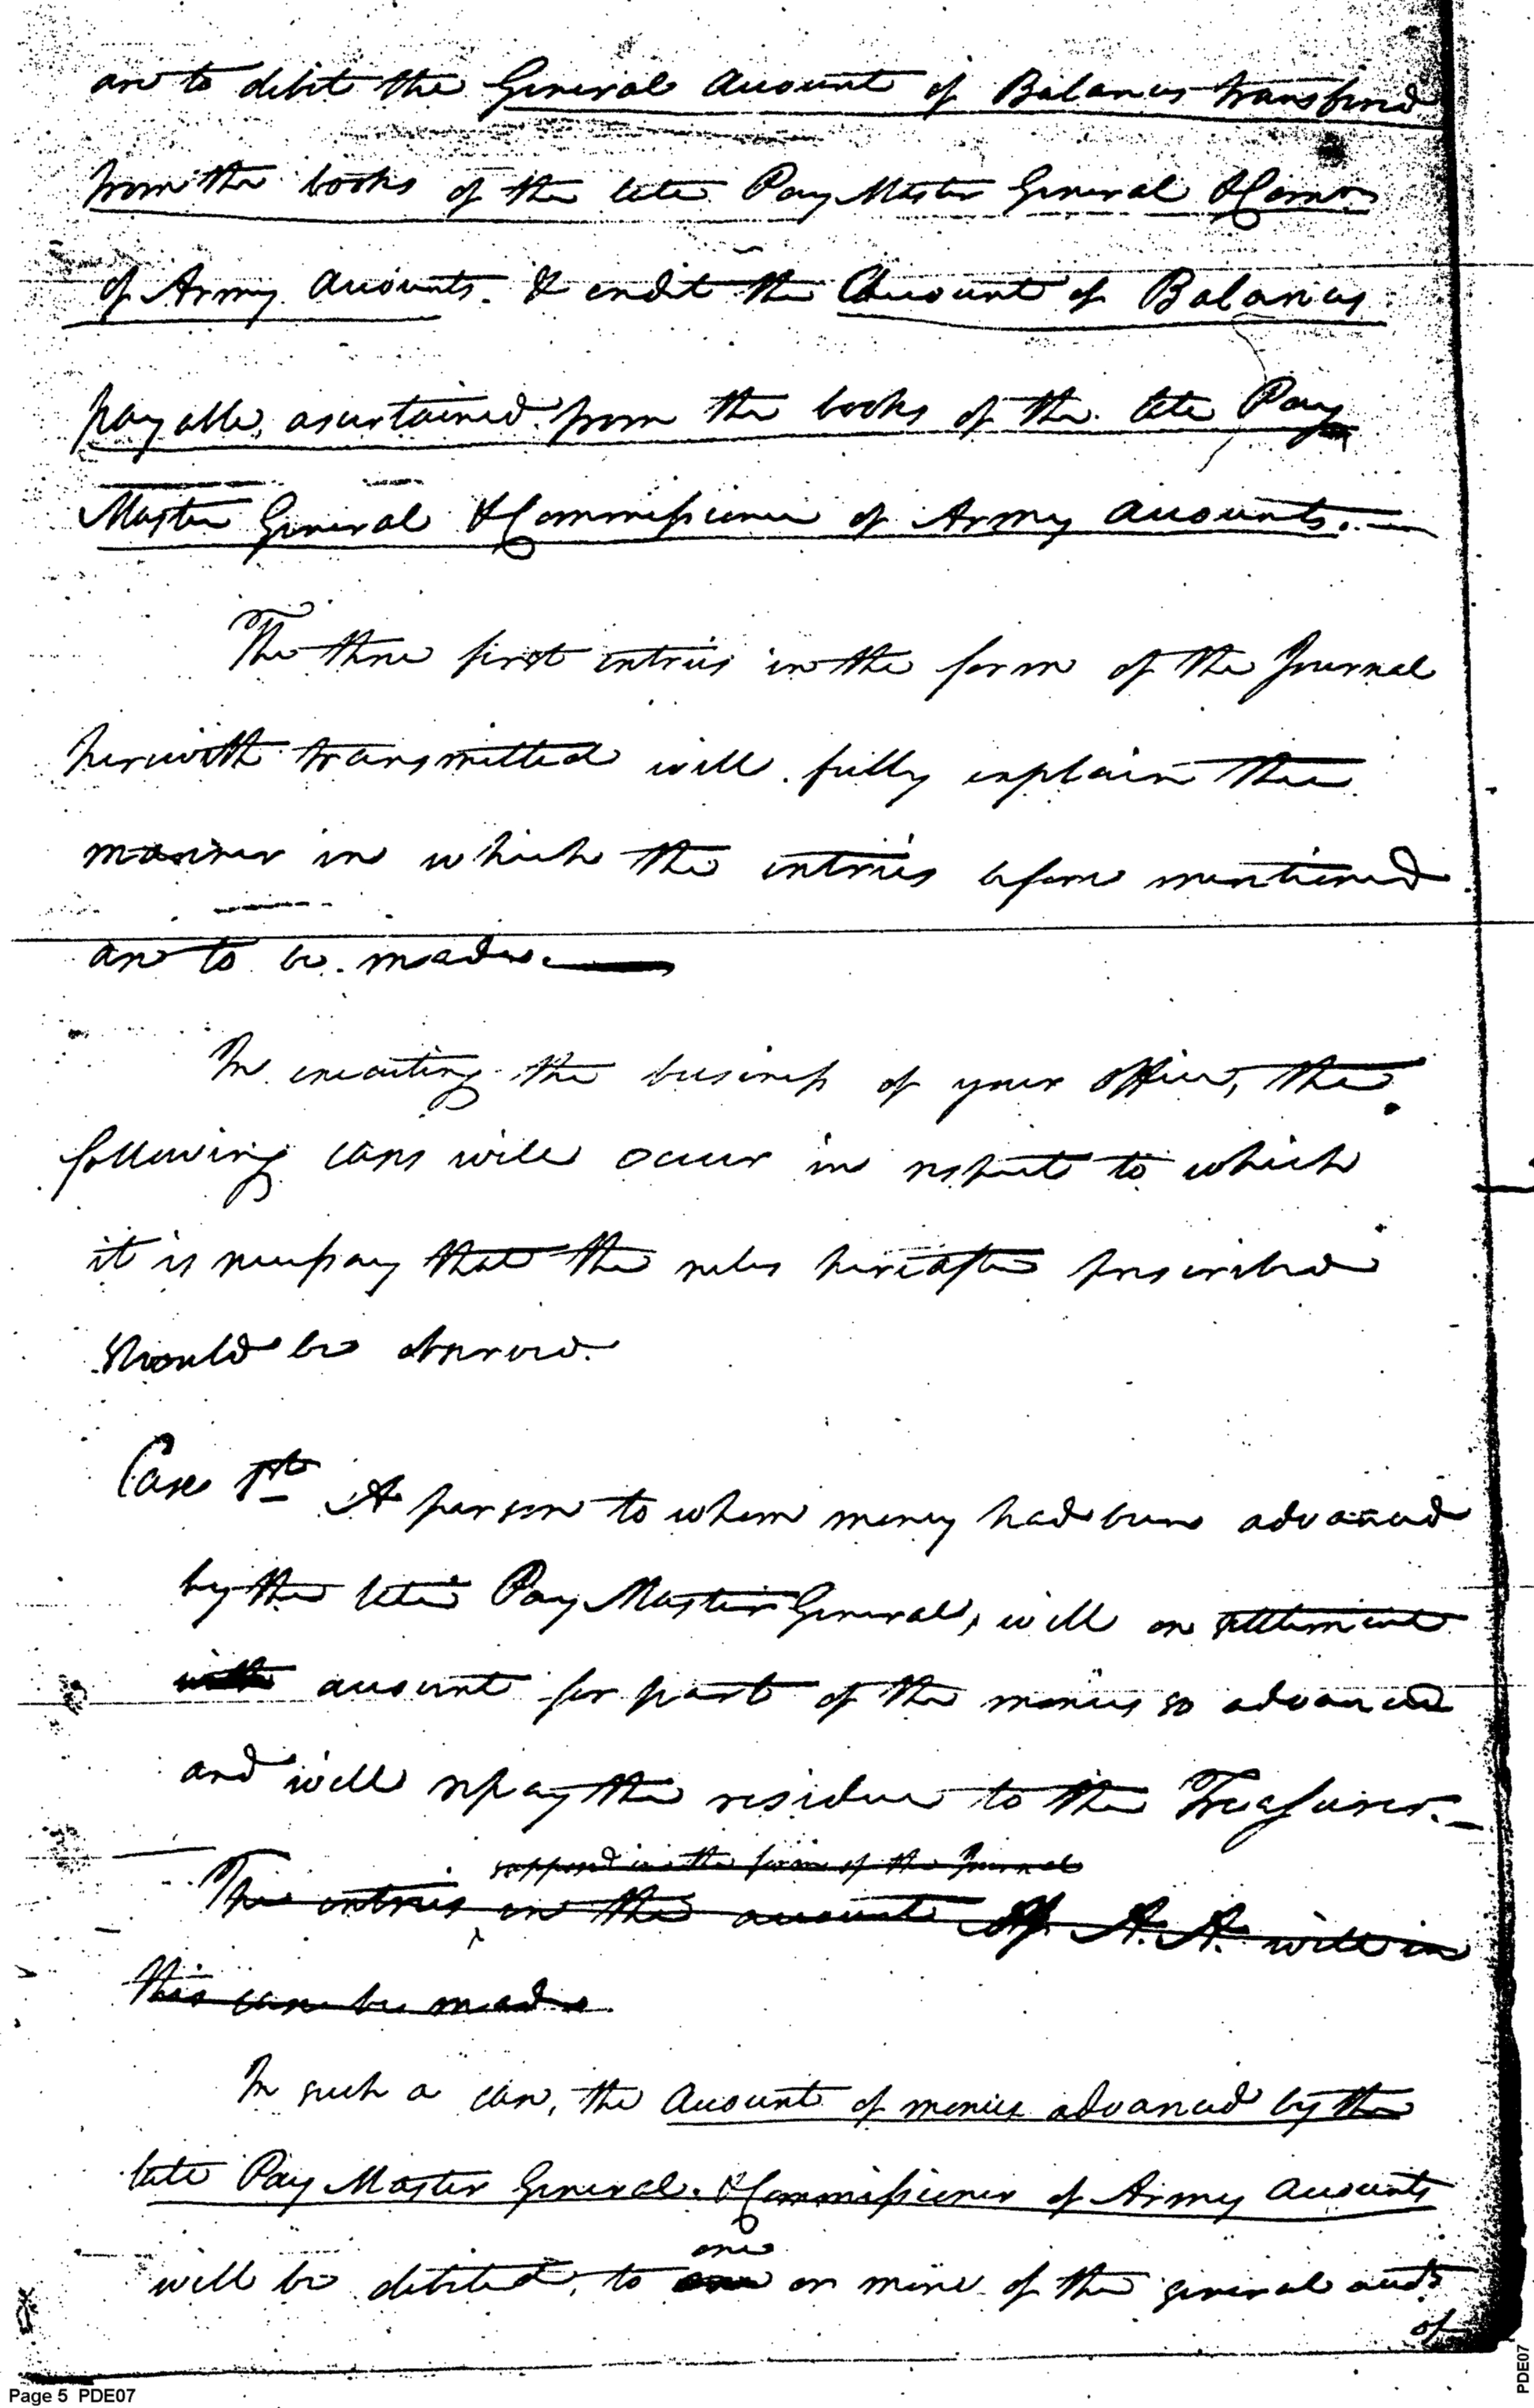 are to debit the General Account of Balances transfered
from the books of the late Pay Master General & Comr
of Army Accounts. & credit the Account of Balances
payable, ascertained from the books of the late Pay
Master General & Commissioner of Army Accounts.—
The three first entries in the form of the Journal
herewith transmitted will fully explain the
manner in which the entries before mentioned
are to be made.—
In executing the business of your office, the
following cases will occur in respect to which
it is necessary that the rules hereafter prescribed
should be observed.
Case 1st A person to whom money had been advanced
by the late Pay Master General, will on settlement
with account for part of the monies so advanced
and will repay the residue to the Treasurer.—
supposed in the form of the Journal
The entries in the account of A. A. will in
this case be made
In such a case, the Account of monies advanced by the
late Pay Master General & Commissioner of Army Accounts
one
will be debited, to or more of the general accts
of
Page 5 PDE07
PDE07